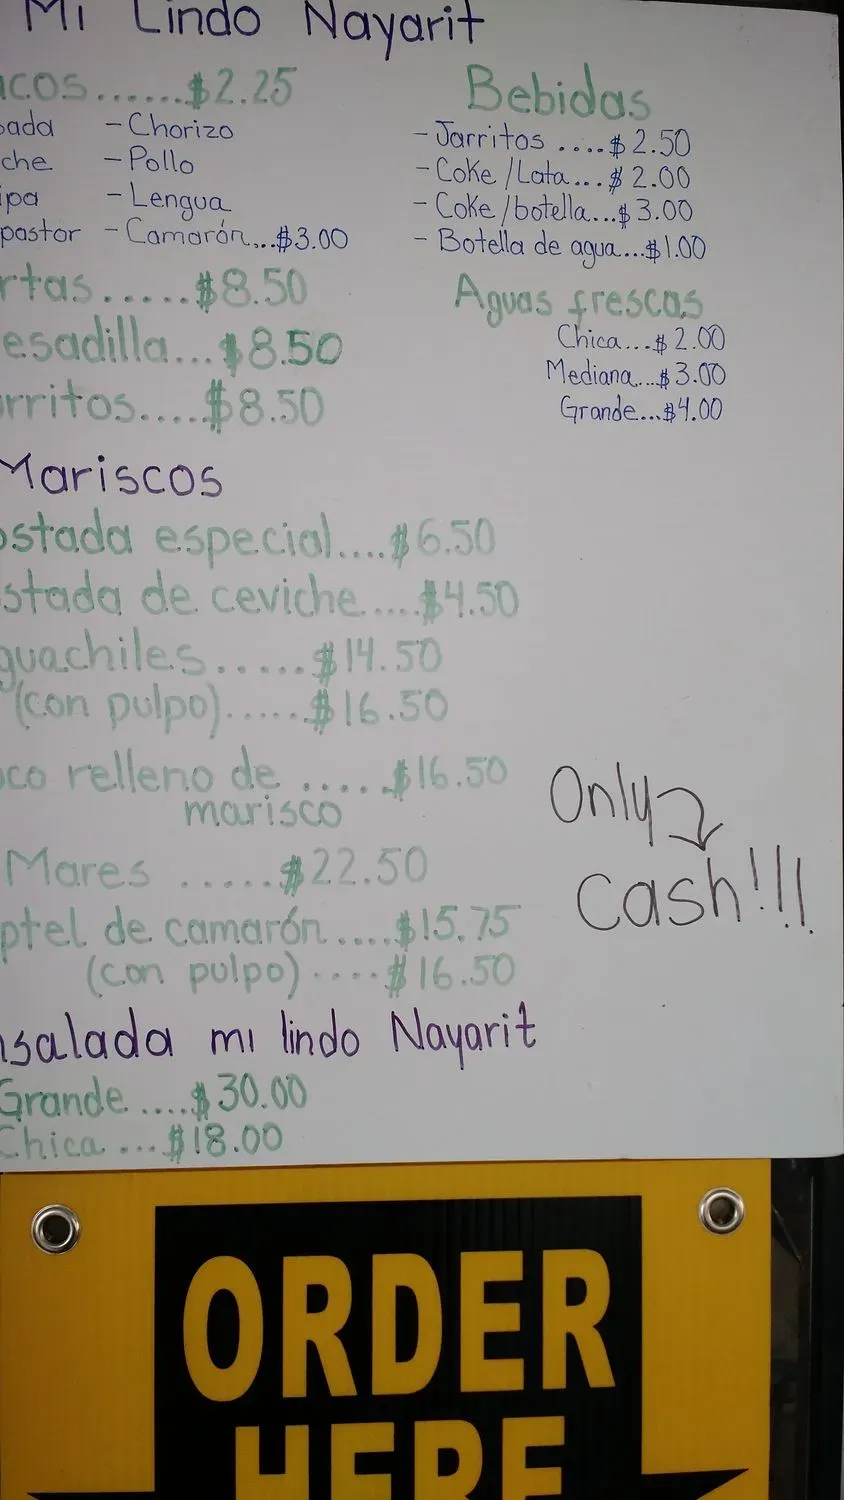 Mi Lindo Nayarit
acos......$2.25
ada - Chorizo
che - Pollo
ipa - Lengua
pastor - Camarón...$3.00
rtas.....$8.50
esadilla...$8.50
rritos....$8.50
Bebidas
- Jarritos ....$2.50
- Coke/Lata...$2.00
- Coke/botella...$3.00
- Botella de agua...$1.00
Aguas frescas
Chica...$2.00
Mediana...$3.00
Grande...$4.00
Mariscos
ostada especial....$6.50
stada de ceviche....$4.50
guachiles......$14.50
(con pulpo)......$16.50
co relleno de .....$16.50
marisco
Mares ......$22.50
ptel de camarón....$15.75
(con pulpo)....$16.50
Only
cash!!!
nsalada mi lindo Nayarit
Grande ....$30.00
Chica ...$18.00
ORDER
HERE